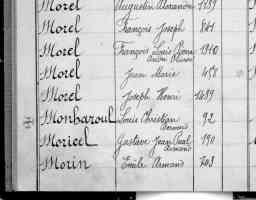 Morel Augustin Alexandre
Morel François Joseph 841
Morel François Louis Pierre 1310
Morel Jean Marie 458
Morel Joseph Henri 1489
Monharoul Louis Christian 92
Armand
Moricel Gustave Jean Paul 190
Armand
Morin Emile Armand 203